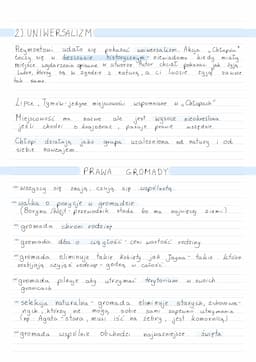 2) UNIWERSALIZM
Reymontowi udało się pokazać uniwersalizm. Akcja „Chłopów"
toczy się w bezczasie historycznym - niewiadomo kiedy miały
miejsce wydarzenia opisane w utworze. Autor chciał pokazać jak żyją
ludzie, którzy są w zgodzie z naturą, a ci ludzie żyją zawsze
tak samo.
Lipce, Tymów - jedyne miejscowości wspomniane w „Chłopach"
Miejscowość ma nazwę ale jest wyspą nieokreśloną
jeśli chodzi o krajobraz, panuje prawie wszędzie.
Chłopi działają jako grupa uzależniona od natury i od
siebie nawzajem.
PRAWA GROMADY
- wszyscy się znają, czują się wspólnotą
- walka o pozycję w gromadzie
(Boryna /wójt - przewodnik stada bo ma najwięcej ziemi)
- gromada chroni rodzinę
- gromada dba o ciągłość - ceni wartość rodziny
- gromada eliminuje takie kobiety jak Jagna - takie które
rozbijają czyjąś rodzinę - godzą w całość
- gromada poluje aby utrzymać terytorium w swoich
granicach
- selekcja naturalna - gromada eliminuje starych, schorowa-
nych, którzy nie mogą sobie sami zapewnić utrzymania
(np. Agata - stara, musi iść na żebry, jest komornicą)
- gromada wspólnie obchodzi najważniejsze święta